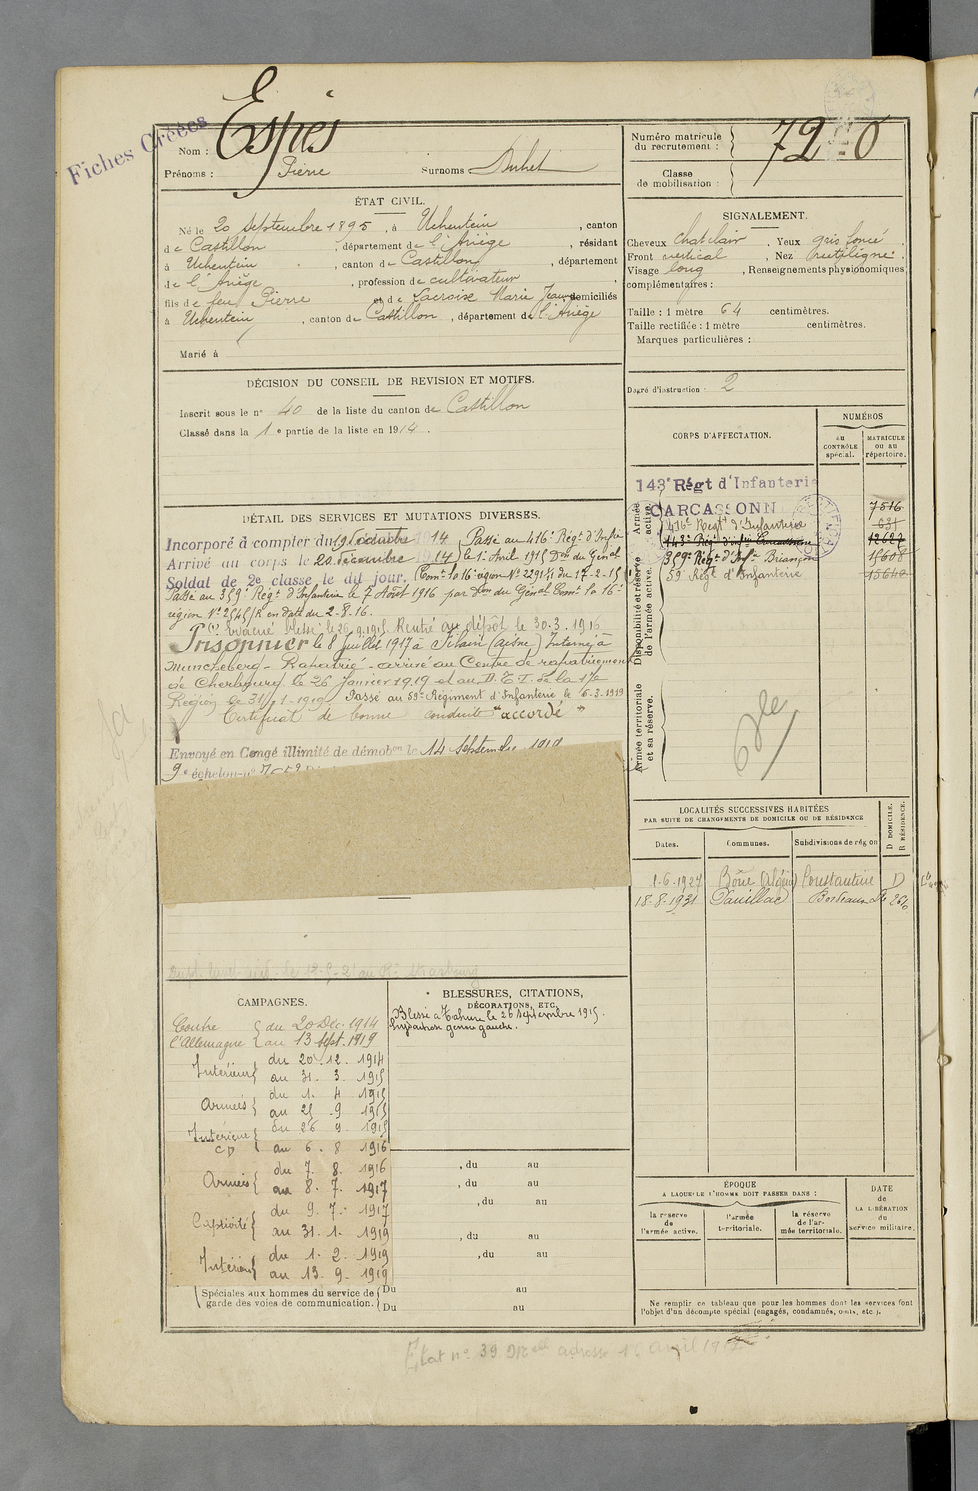 Fiches Créées
Nom : Espès
Prénoms : Pierre Surnoms
Numéro matricule
du recrutement : 720
Classe
de mobilisation :
ÉTAT CIVIL.
Né le 20 Septembre 1895, à Uchentein, canton
de Castillon, département de l'Ariège, résidant
à Uchentein, canton de Castillon, département
de l'Ariège, profession de cultivateur
fils de feu Pierre et de Lacroix Marie Jeanne domiciliés
à Uchentein, canton de Castillon, département de l'Ariège
Marié à
SIGNALEMENT.
Cheveux chat clair. Yeux gris foncé.
Front vertical. Nez rectiligne.
Visage long, Renseignements physionomiques
complémentaires :
Taille : 1 mètre 64 centimètres.
Taille rectifiée : 1 mètre centimètres.
Marques particulières :
Degré d'instruction : 2
DÉCISION DU CONSEIL DE REVISION ET MOTIFS.
Inscrit sous le n° 40 de la liste du canton de Castillon
Classé dans la 1e partie de la liste en 1914.
CORPS D'AFFECTATION.
NUMÉROS
AU CONTRÔLE spécial.
MATRICULE ou au répertoire.
Armée active.
143e Régt d'Infanterie
CARCASSONNE 7516
416e Régt d'Infanterie 631
143e Rég. d'Infie Carcassonne
359e Régt d'Infie Briançon
59e Régt d'Infanterie
Disponibilité et réserve
de l'armée active.
Armée territoriale
et sa réserve.
DÉTAIL DES SERVICES ET MUTATIONS DIVERSES.
Incorporé à compter du 19 décembre 1914 Passé au 416e Régt d'Infie
Arrivé au corps le 20 décembre 1914 le 1er Avril 1915 Don du Génal
Soldat de 2e classe le dit jour. (Comt la 16e région N° 2291 1/1 du 17-2-15
Passé au 359e Régt d'Infanterie le 7 Août 1916 par Don du Génal Comt la 16e
région N° 2545/R en date du 2-8-16.
évacué blessé le 26.9.1915 Rentré au dépôt le 30.3.1916
Prisonnier le 8 Juillet 1917 à Filain (Aisne) Interné à
Muncheberg - Rapatrié - arrivé au Centre de rapatriement
de Cherbourg le 26 janvier 1919 et au D.T.I. de la 17e
Région le 31/1-1919 Passé au 59e Régiment d'Infanterie le 6-3-1919
Certificat de bonne conduite "accordé"
Envoyé en Congé illimité de démobon le 14 Septembre 1919
9e échelon n°
LOCALITÉS SUCCESSIVES HABITÉES
PAR SUITE DE CHANGEMENTS DE DOMICILE OU DE RÉSIDENCE
Dates. Communes. Subdivisions de région
D DOMICILE.
R RÉSIDENCE.
1-6-1927 Bône (Algérie) Constantine D
18-8-1931 Pauillac Bordeaux
CAMPAGNES.
Contre l'Allemagne { du 20 Déc. 1914
au 13 Sept. 1919
Intérieur { du 20-12. 1914
au 31. 3. 1915
Armées { du 1. 4 1915
au 25 .9 1915
Intérieur { du 26 9. 1915
CD au 6. 8 1916
Armées { du 7. 8. 1916
au 8. 7. 1917
Captivité { du 9. 7. 1917
au 31. 1. 1919
Intérieur { du 1. 2. 1919
au 13. 9. 1919
Spéciales aux hommes du service de garde des voies de communication. { Du au
Du au
BLESSURES, CITATIONS,
DÉCORATIONS, ETC.
Blessé à Tahure le 26 Septembre 1915.
genou gauche.
, du au
, du au
, du au
, du au
, du au
ÉPOQUE
A LAQUELLE L'HOMME DOIT PASSER DANS :
la réserve de l'armée active.
l'armée territoriale.
la réserve de l'armée territoriale.
DATE
de
LA LIBÉRATION
du
service militaire.
Ne remplir ce tableau que pour les hommes dont les services font
l'objet d'un décompte spécial (engagés, condamnés, omis, etc.).
Etat n° 39